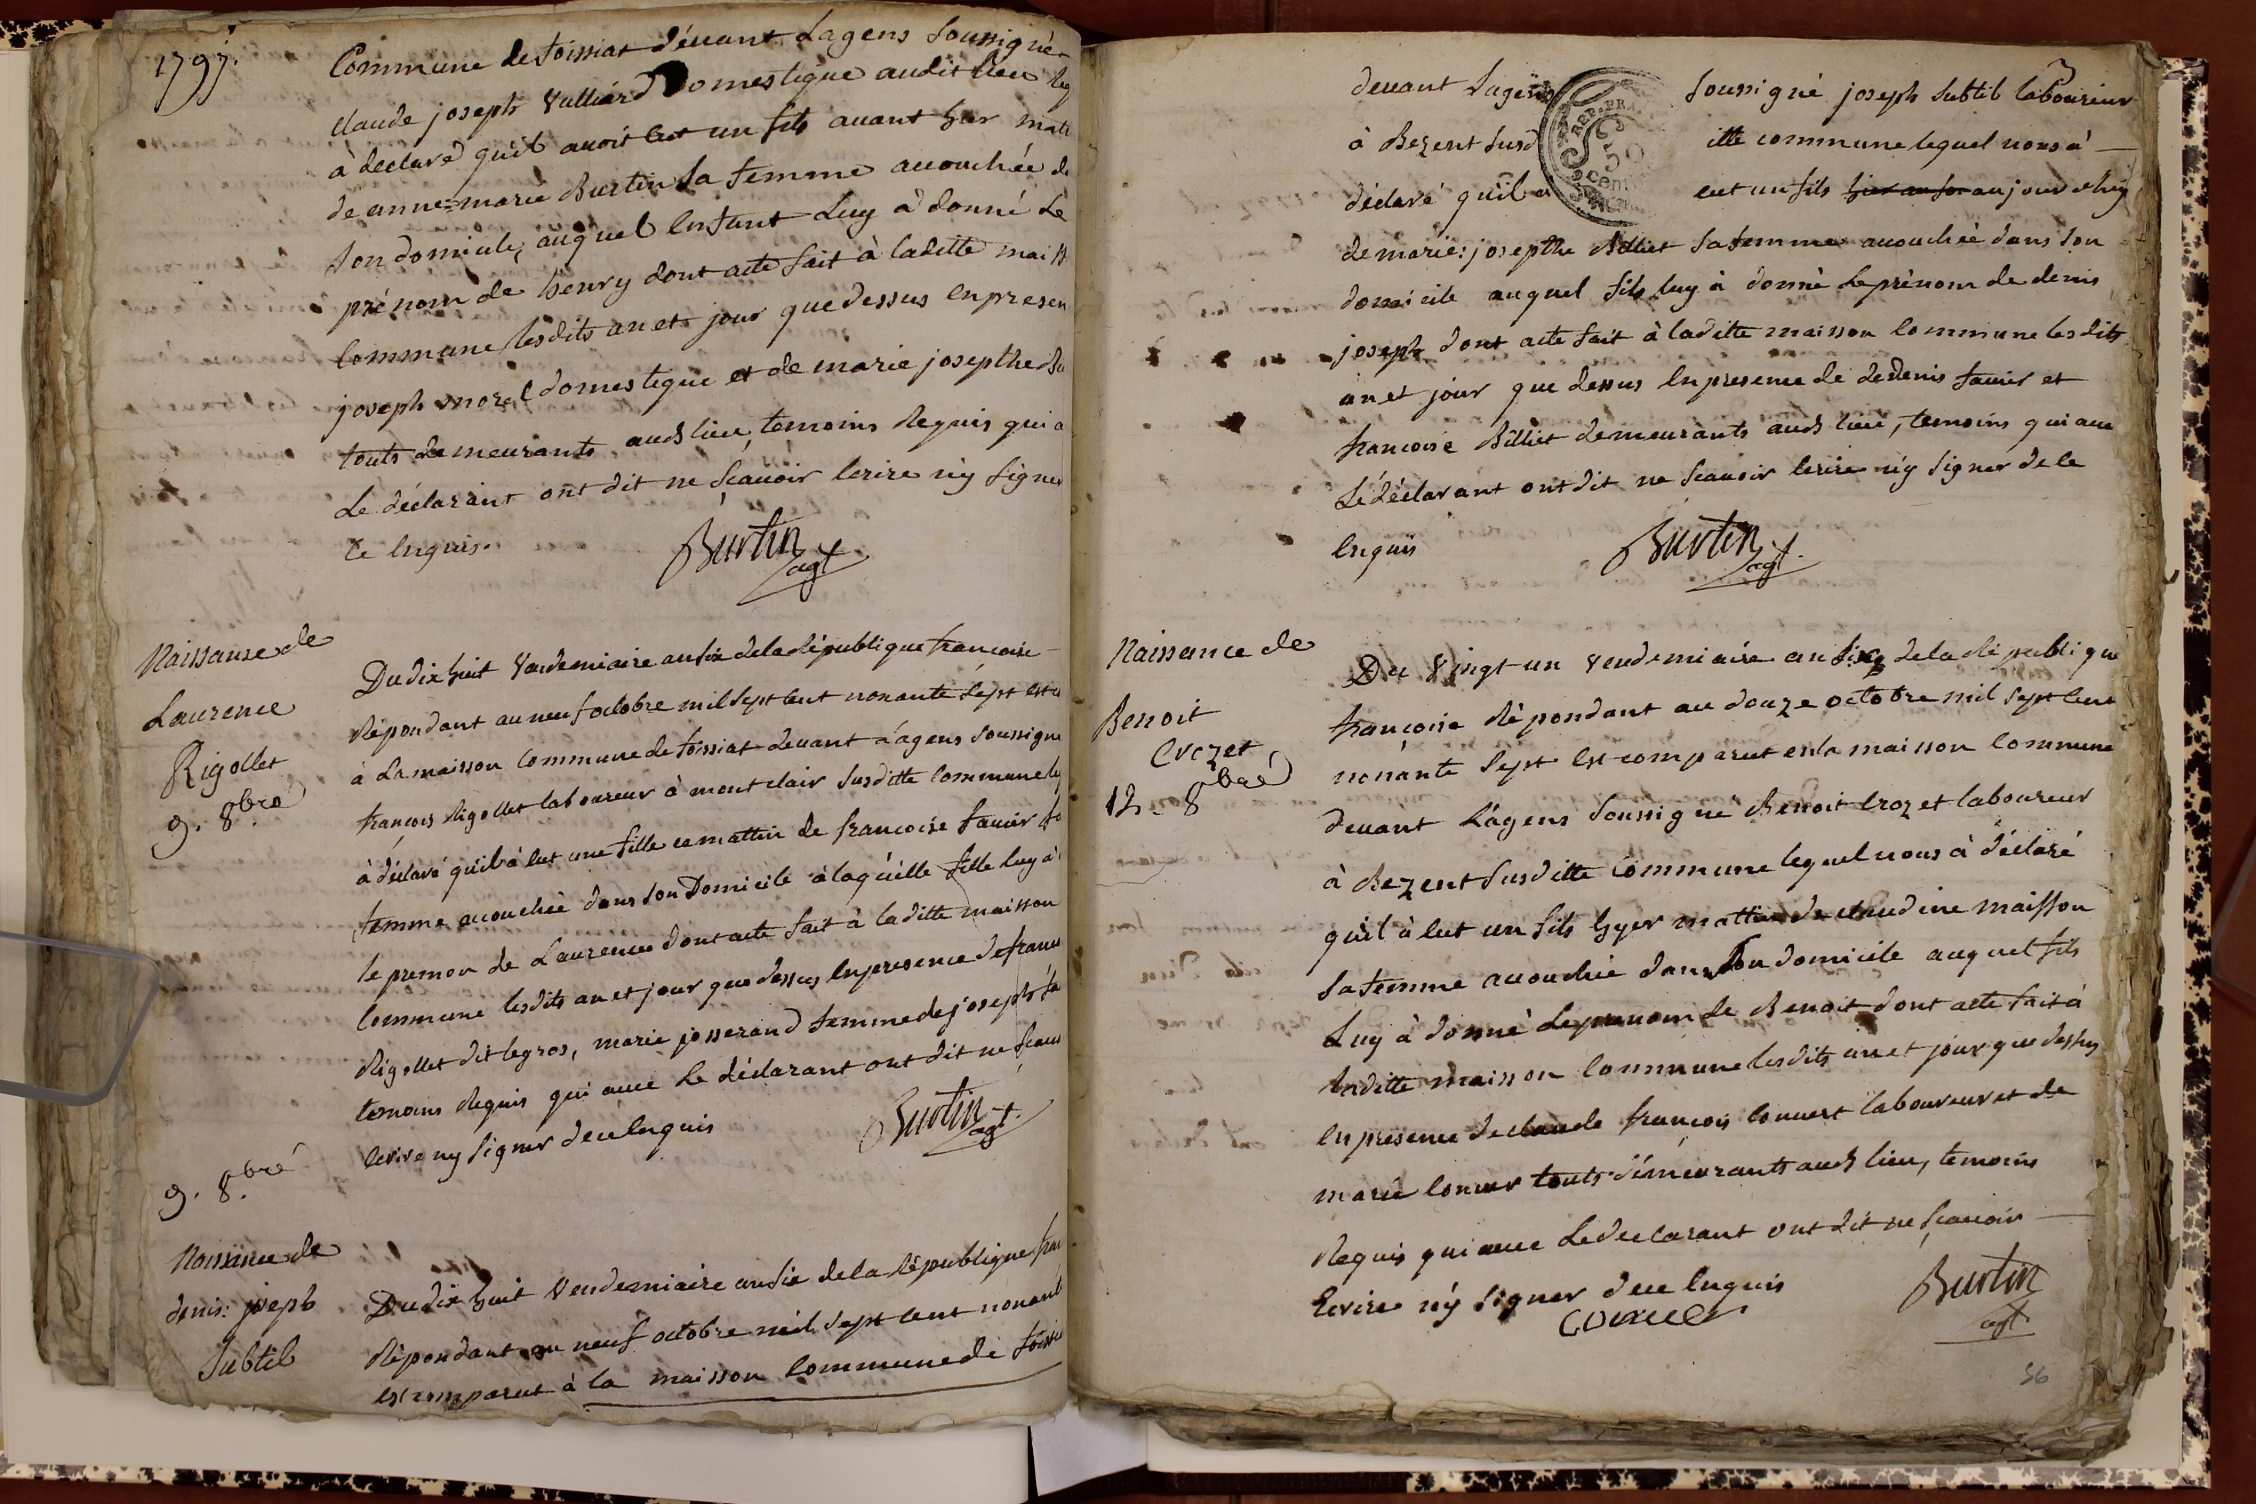 1797.
Commune de foissiat dévant Lagens soussigné
claude joseph Vulliard Domestique audit lieu leq
à declaré quil avoit eut un fils avant hier mati
de anne=marie Burtin sa femme acouchée d
son domicile, auquel Enfant Luy à donné Le
prénom de henry dont acte fait à laditte maiss
Commune lesdits an et jour que dessus En presen
joseph morel domestique et de marie josepthe
touts demeurants auds lieu, temoins Requis qui a
Le déclarant ont dit ne sçauoir Ecrire n'y signer
ce Enquis.
Burtin
agt
Naissanse de
Laurence
Rigollet
9. 8.bre
Du dix huit Vendemiaire an six de la République francoise
Répondant au neuf octobre mil sept cent nonante sept est c
à La maisson Commune de foissiat devant L'ágens soussigne
françois Rigollet laboureur à mont clair susditte Commune leq
à déclaré quil à Eut une fille ce mattin de francoise favier sa
femme acouchée dans son Domicile à laquelle fille luy à
le prenon de Laurence dont acte fait à laditte maisson
Commune lesdits an et jour que dessus En presence de franco
Rigollet dit legros, marie josserand femme de joseph fa
temoins Requis qui avec Le déclarant ont dit ne sçauo
Ecrire ny signer de ce Enquis
Burtin
agt.
9. 8.bre
Naissance de
denis: joseph
Subtil
Du dix huit Vendemiaire an six de la République fran
Répondant au neuf octobre mil sept cent nonant
est comparut à la maisson Commune de foissi
devant Lagens soussigné joseph Subtil laboureur
à Bezent susd itte commune lequel nous à
déclaré quil a eut un fils hier au soir aujourdhuy
de marie: josepthe Billiet sa femme acouchée dans son
domicile auquel fils luy à donné Le prénom de denis
joseph dont acte fait à laditte maisson Commune lesdits
an et jour que dessus En presence de de denis favier et
francoise Billiet demeurants auds lieu, temoins qui avec
Le déclarant ont dit ne scauoir Ecrire n'y signér de ce
Enquis
Burtin
agt.
Naissance de
Benoit
Crozet
12. 8bre
Du Vingt un Vendemiaire an six de la République
françoise Répondant au douze octobre mil sept cent
nonante sept Est comparut en la maisson Commune
devant L'ágens soussigné Benoit Crozet laboureur
à Bezent susditte Commune lequel nous à déclaré
quil à Eut un fils hyer mattin de claudine maisson
sa femme acouchée dans son domicile auquel fils
Luy à donné Le prenom de Benoit dont acte fait à
laditte maisson Commune lesdits an et jour que dessus
En presence de claude françois Convert laboureur et de
marie touts démeurants auds lieu, temoins
Requis qui avec Le declarant ont dit ne sçauoir
Ecrire n'y signer de ce Enquis
Burtin
agt
56